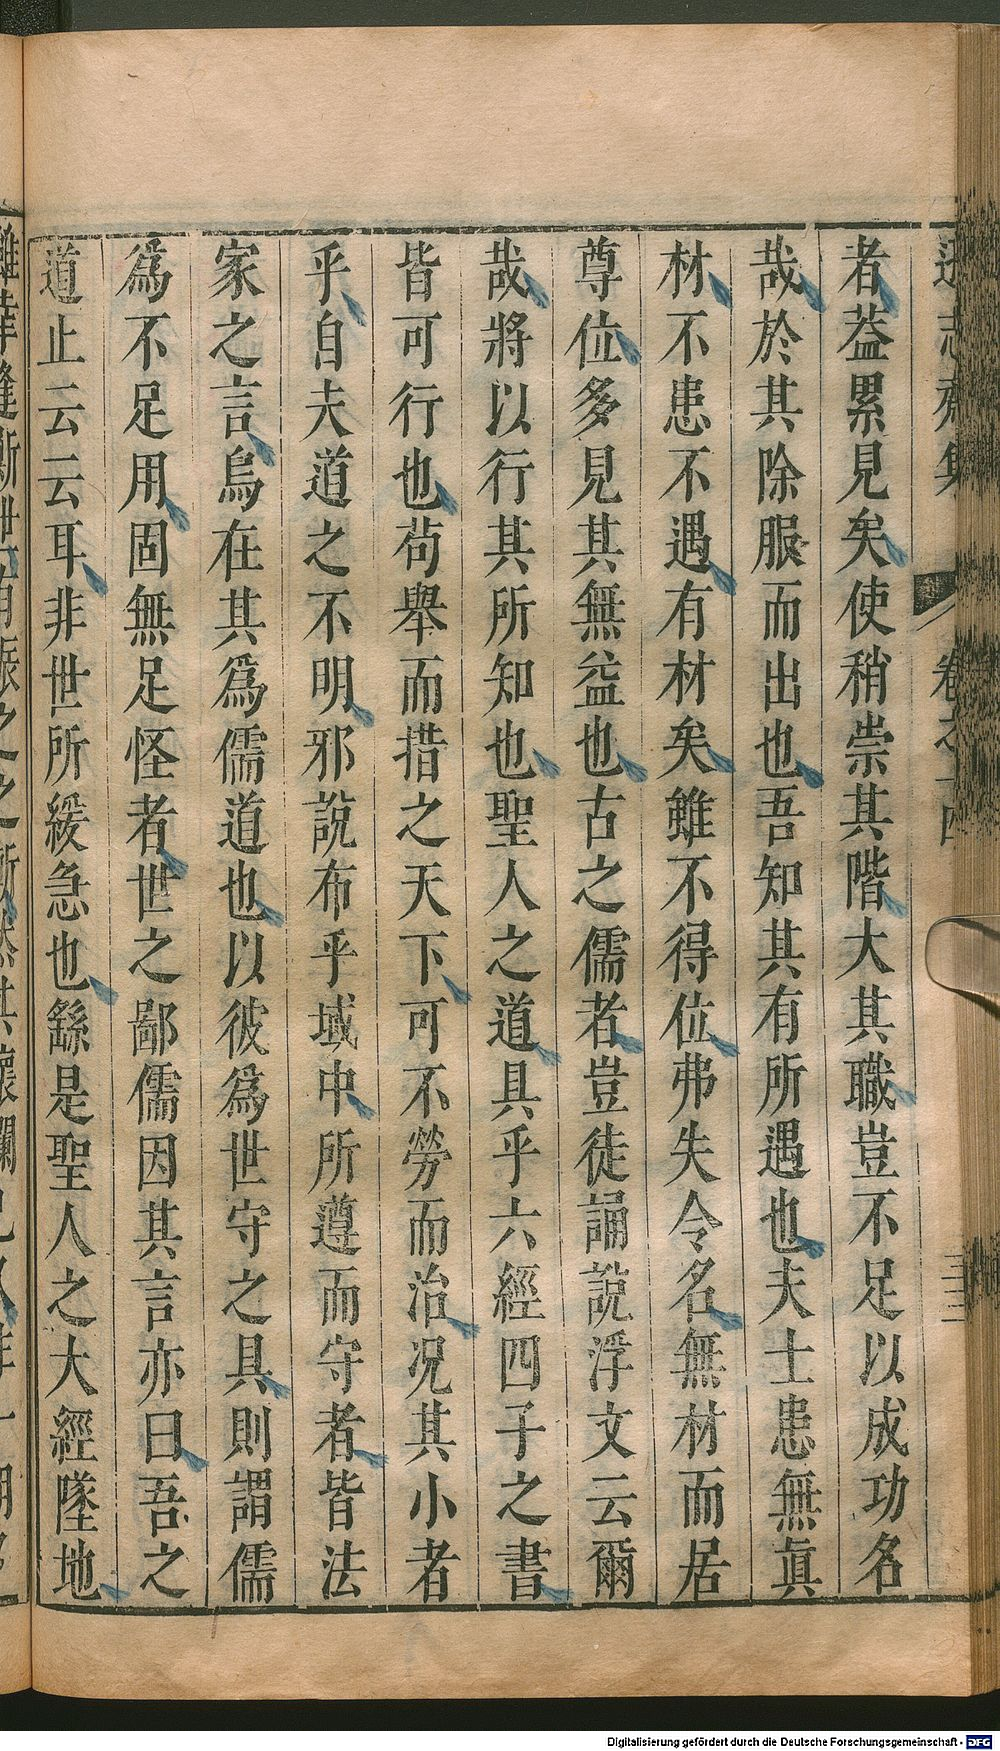 遜志齋集 卷之十四 三二
者益累見矣使稍崇其階大其職豈不足以成功名
哉於其除服而出也吾知其有所遇也夫士患無眞
材不患不遇有材矣雖不得位弗失令名無材而居
尊位多見其無益也古之儒者豈徒誦說浮文云爾
哉將以行其所知也聖人之道具乎六經四子之書
皆可行也苟舉而措之天下可不勞而治况其小者
乎自夫道之不明邪說布乎域中所遵而守者皆法
家之言烏在其爲儒道也以彼爲世守之具則謂儒
爲不足用固無足怪者世之鄙儒因其言亦曰吾之
道止云云耳非世所緩急也繇是聖人之大經墜地
Digitalisierung gefördert durch die Deutsche Forschungsgemeinschaft - DFG